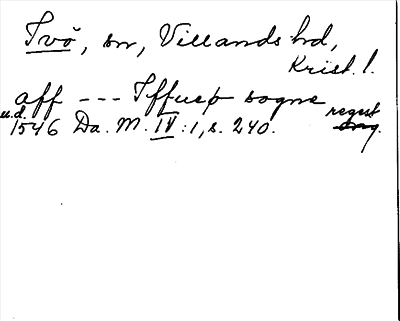 Ivö, sn, Villands hd,
Krist. l.
aff --- Iffuep sogne
u.d. regest
1546 Da. M. IV:1, s. 240. orig.